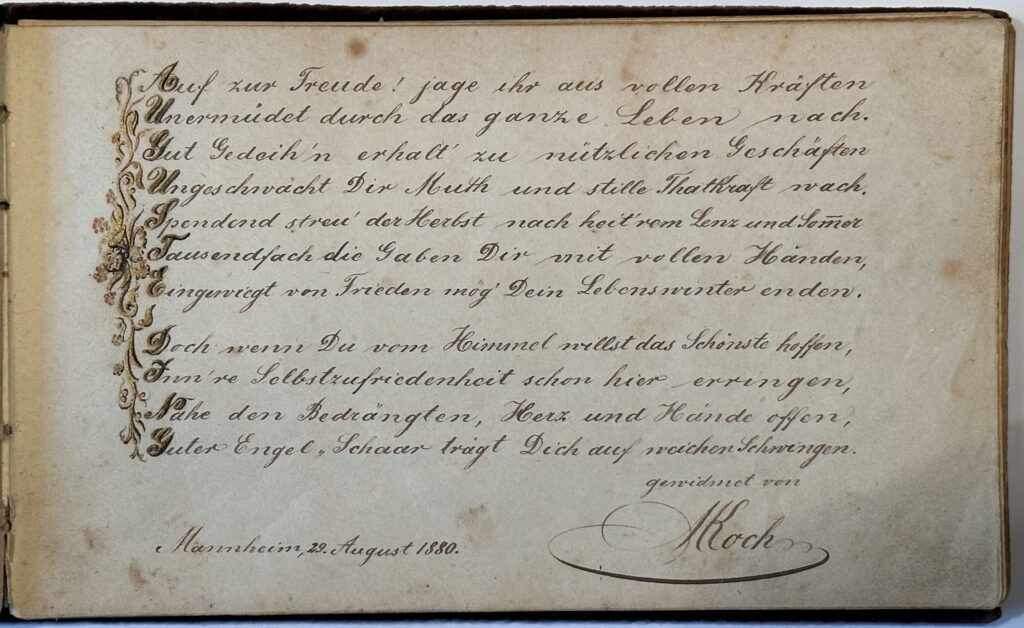 Auf zur Freude! jage ihr aus vollen Kräften
Unermüdet durch das ganze Leben nach.
Gut Gedeih'n erhalt' zu nützlichen Geschäften
Ungeschwächt Dir Muth und stille Thatkraft wach.
Spendend streu' der Herbst nach heit'rem Lenz und Som̅er
Tausendfach die Gaben Dir mit vollen Händen,
Eingewiegt von Frieden mög' Dein Lebenswinter enden.
Doch wenn Du vom Himmel willst das Schönste hoffen,
Inn're Selbstzufriedenheit schon hier erringen,
Nahe den Bedrängten, Herz und Hände offen,
Guter Engel-Schaar trägt Dich auf weichen Schwingen.
gewidmet von
Koch
Mannheim, 29. August 1880.